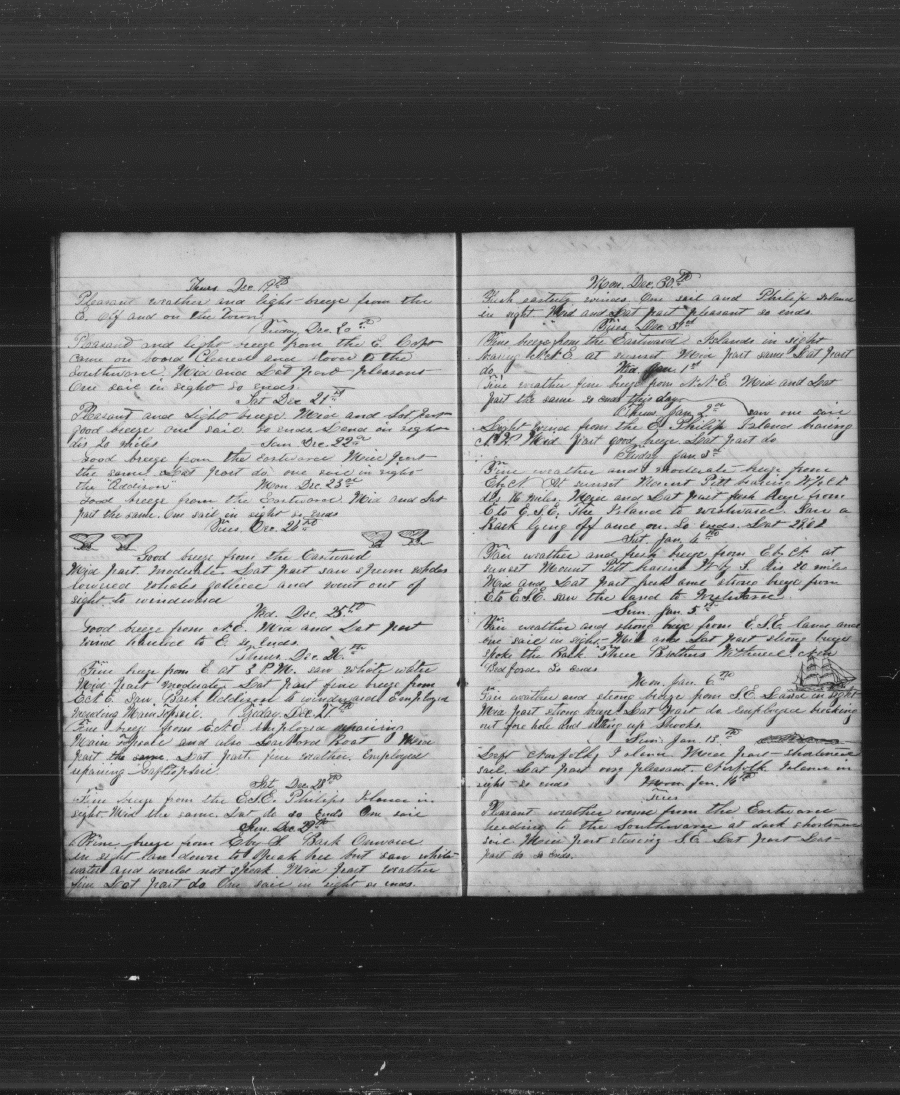 Thurs Dec. 19th
Pleasant weather and light breeze from the
E. off and on the Town
Friday Dec. 20th
Pleasant and light breeze from the E. Capt
came on board Cleared and stood to the
Southward. Mid and Lat part pleasant
One sail in sight so ends.
Sat Dec 21st
Pleasant and Light breeze Mid and Lat part
good breeze one sail so ends Land in sight
dis 20 miles Sun Dec. 22nd
Good breeze from the Eastward Mid part
the same. Lat part do one sail in sight
the "Addison" Mon Dec 23rd
Good breeze from the Eastward Mid and Lat
part the same. One sail in sight so ends
Tues Dec. 24th
Good breeze from the Eastward
Mid part moderate Lat part saw sperm whales
lowered whales gallied and went out of
sight to windward
Wed. Dec. 25th
Good breeze from N.E. Mid and Lat part
wind hauled to E. so ends
Thurs Dec. 26th
Fine breeze from E at 3 P.M. saw white water
Mid part moderate Lat part fine breeze from
E.N.E. Saw Bark Addison to windward Employed
mending Main Topsail. Friday Dec 27th
Fine breeze from E.N.E. employed repairing
Main topsail and also Larboard Boat Mid
part the same. Lat part fine weather. Employed
repairing
Sat. Dec. 28th
Fine breeze from the E.N.E. Philips Island in
sight. Mid the same. Lat do so ends One sail
Sun Dec 29th
Fine breeze from E by N Bark Onward
in sight run down to speak her but saw white
water and would not speak Mid part weather
fine Lat part do One sail in sight so ends.
Mon. Dec. 30th
Fresh easterly winds. One sail and Philip Island
in sight Mid and Lat part pleasant so ends.
Tues Dec 31st
Fine breeze from the Eastward Islands in sight
bearing N.N.E at sunset Mid part same Lat part
do Wed Jan 1st
Fine weather fine breeze from N.N.E. Mid and Lat
part the same so ends this day
Thurs Jan. 2nd saw one sail
Light winds from the E. Philip Island bearing
N.W Mid part good breeze Lat part do
Friday Jan 3rd
Fine weather and moderate breeze from
E by N At sunset Mount Pitt bearing
dis 16 miles. Mid and Lat part fresh breeze from
E to E.S.E. The Island to windward. Saw a
Bark lying off and on. So ends. Lat
Sat. Jan 4th
Fair weather and fresh breeze from E by N at
sunset Mount Pitt bearing W by S dis 20 miles
Mid and Lat part fresh and strong breeze from
E to E.S.E. saw the land to Westward
Sun. Jan 5th
Fair weather and strong breeze from E.S.E. Land and
one sail in sight Mid and Lat part strong breeze
spoke the Bark "Three Brothers" New
Bedford. So ends
Mon. Jan. 6th
Fine weather and strong breeze from S.E. Land in sight
Mid part strong breeze Lat part do employed breaking
out fore hole and setting up shooks.
Sun Jan 13th
Dept Norfolk Island Mid part shortened
sail. Lat part very pleasant. Norfolk Island in
sight so ends Mon. Jan. 14th
Tues
Pleasant weather wind from the Eastward
heading to the Southward at dark shortened
sail Mid part S.E. Lat part
part do so ends.